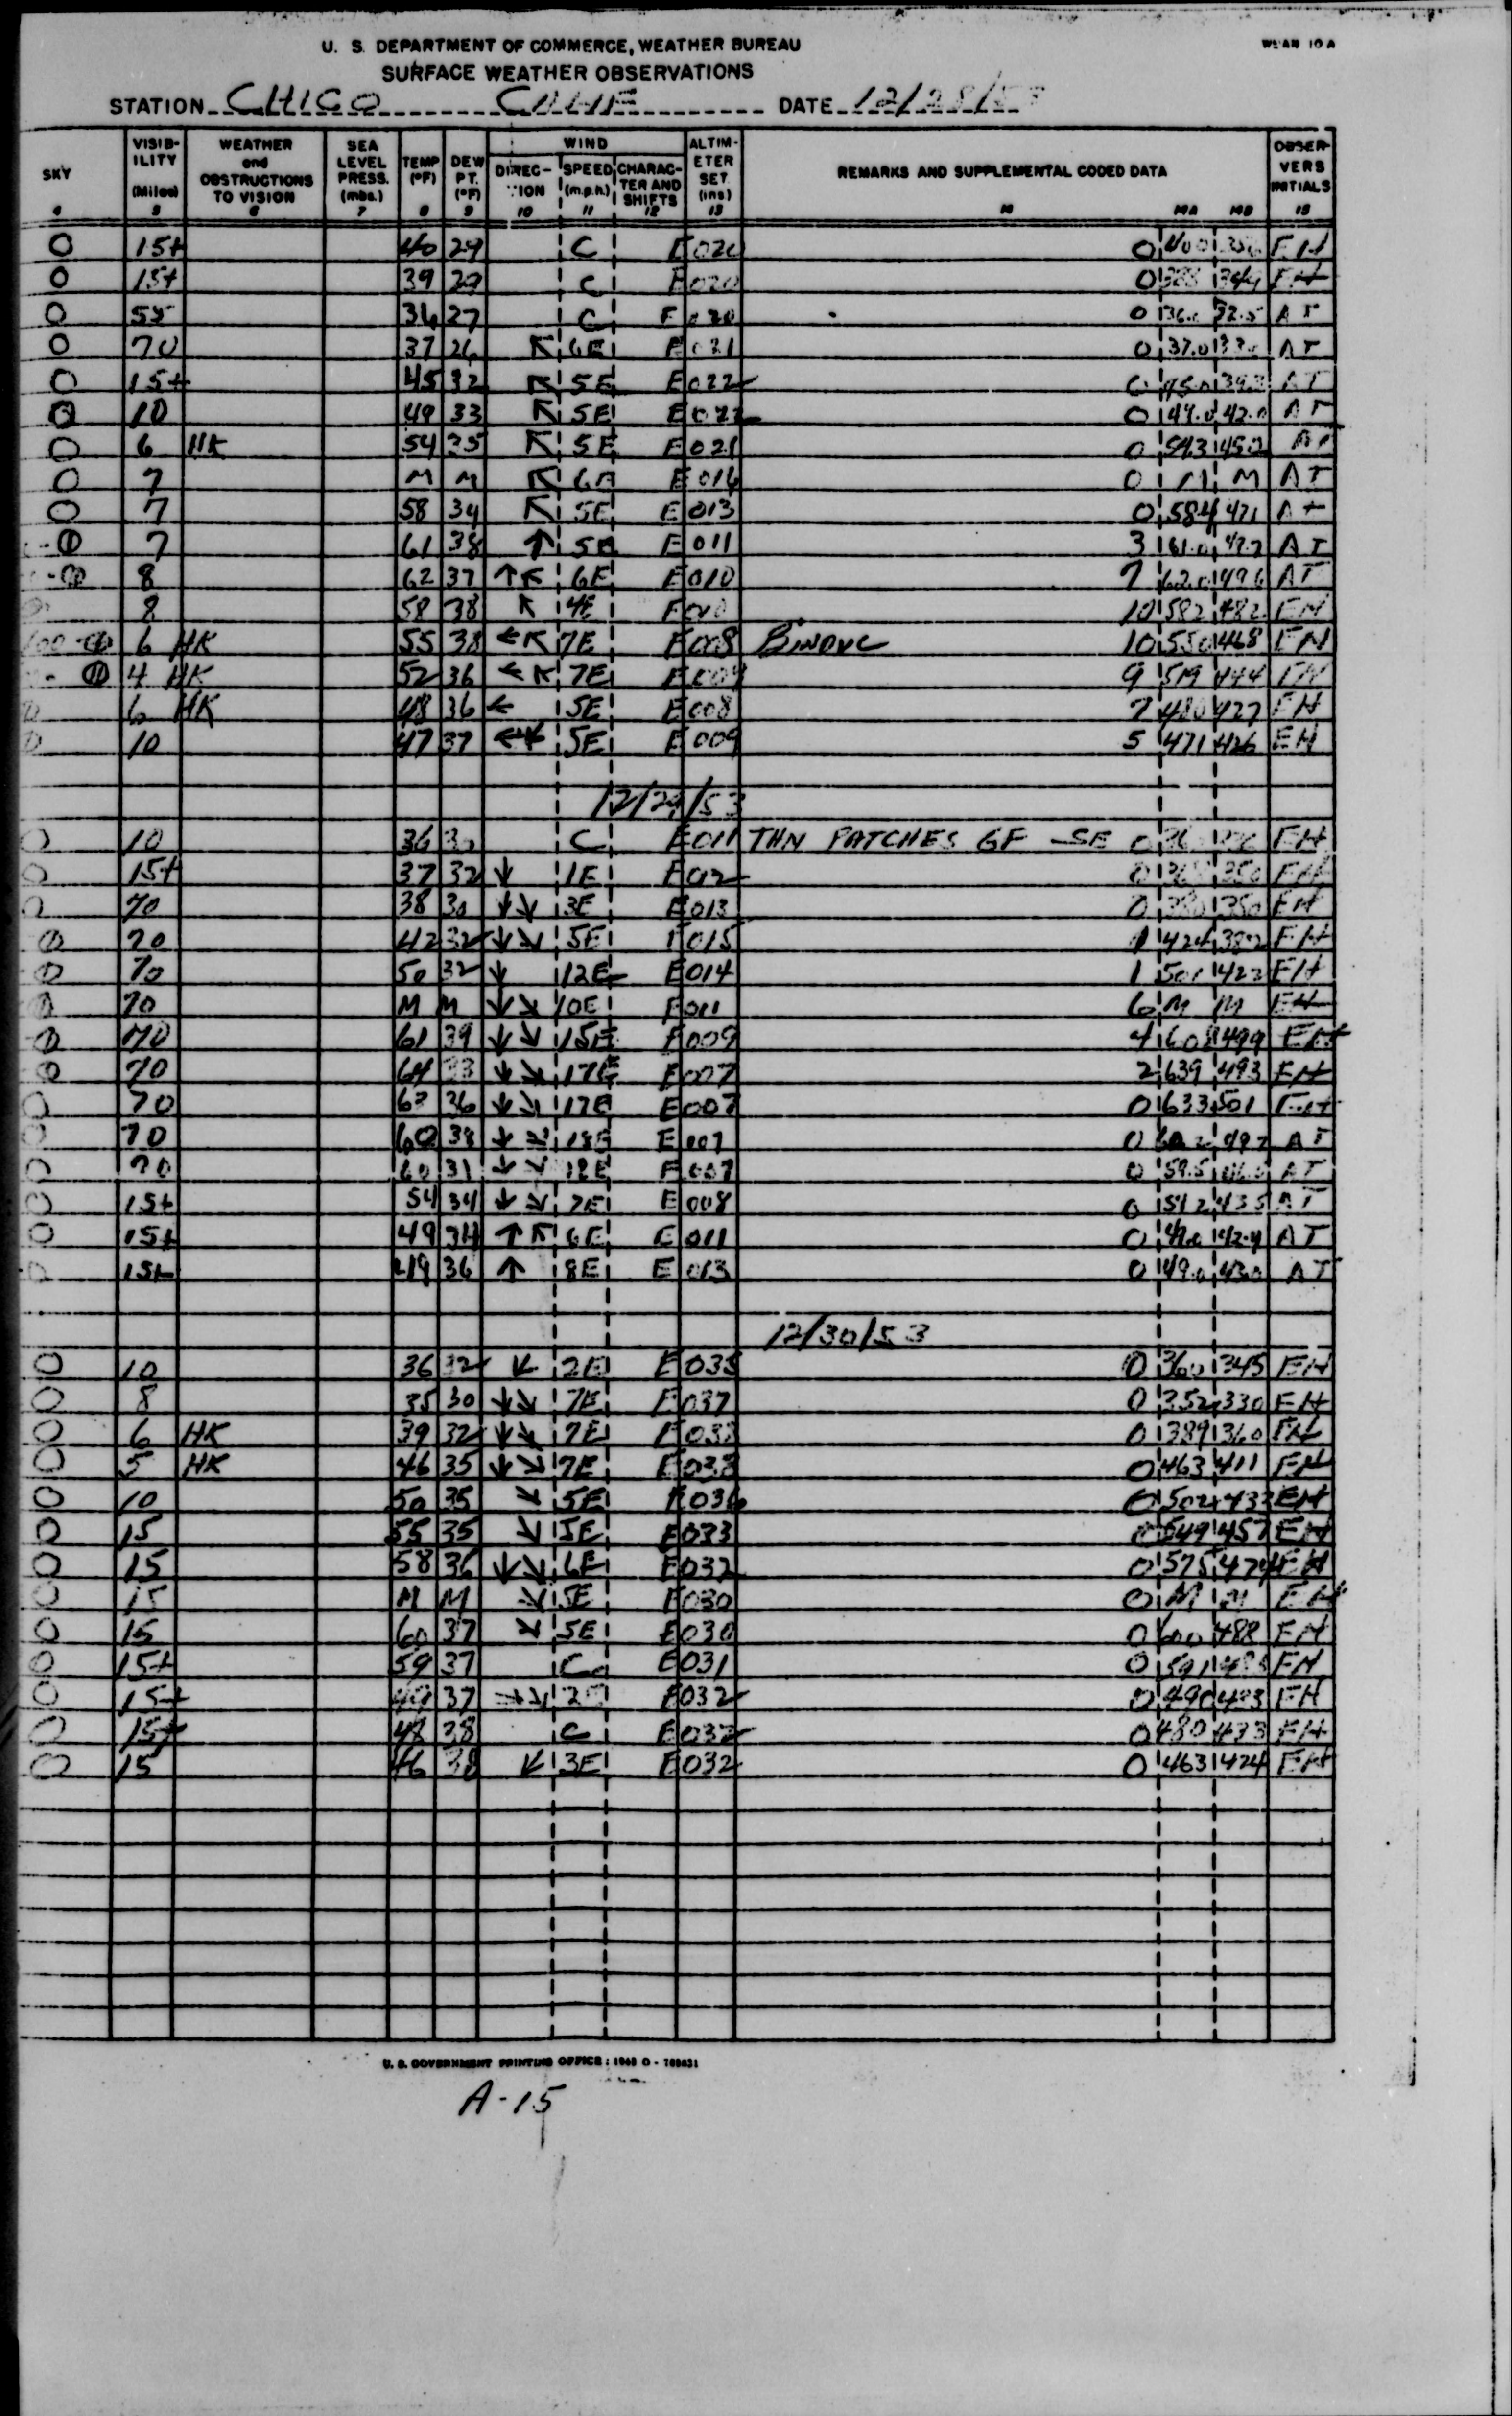 WBAN 10A
U. S. DEPARTMENT OF COMMERCE, WEATHER BUREAU
SURFACE WEATHER OBSERVATIONS
STATION CHICO CALIF DATE 12/28/53
SKY VISIBILITY (Miles) WEATHER and OBSTRUCTIONS TO VISION SEA LEVEL PRESS. (mbs.) TEMP (°F) DEW PT. (°F) WIND DIRECTION SPEED (m.p.h.) CHARACTER AND SHIFTS ALTIMETER SET. (ins) REMARKS AND SUPPLEMENTAL CODED DATA OBSERVERS INITIALS
4 5 6 7 8 9 10 11 12 13 14 14A 14B 15
O 15+ 40 29 C E 020 0 400 EH
O 15+ 39 29 C E 020 0 349 EH
O 55 36 27 C E 020 0 32.5 AT
O 70 37 26 ↖ 6E E 021 0 37.0 AT
O 15+ 45 32 ↖ 5E E 022 0 45.0 AT
O 10 49 33 ↖ 5E E 022 0 49.0 42.0 AT
O 6 HK 54 35 ↖ 5E E 021 0 543 452 AT
O 7 M M ↖ 6E E 016 0 M M AT
O 7 58 34 ↖ 5E E 013 0 584 471 AT
-⦶ 7 61 38 ↑ 5E E 011 3 61.0 AT
-⦶ 8 62 37 ↑↖ 6E E 010 7 620 496 AT
8 58 38 ↖ 4E E 010 10 582 482 EH
-⦶ 6 HK 55 38 ←↖ 7E E 008 BINOVC 10 550 468 EH
-⦶ 4 HK 52 36 ←↖ 7E E 009 9 519 444 EH
6 HK 48 36 ← 5E E 008 7 480 427 EH
10 47 37 5E E 009 5 471 426 EH
12/29/53
O 10 36 30 C E 011 THN PATCHES GF -SE 0 EH
O 15+ 37 32 ↓ 1E E 012 0 350 EH
O 70 38 30 ↓↘ 3E E 013 0 380 350 EH
⦶ 70 42 32 ↓↘ 5E E 015 1 424 382 EH
⦶ 70 50 32 ↓ 12E E 014 1 501 423 EH
⦶ 70 M M ↓↘ 10E E 011 6 M M EH
⦶ 70 61 39 ↓↘ 15E E 009 4 608 499 EH
⦶ 70 64 33 ↓↘ 17E E 007 2 639 493 EH
O 70 63 36 ↓↘ 17E E 007 0 633 501 EH
O 70 60 38 ↓↘ 18E E 007 0 AT
O 70 60 31 ↓↘ 12E E 007 0 59.5 AT
O 15+ 54 34 ↓↘ 7E E 008 0 542 435 AT
O 15+ 49 34 ↑↖ 6E E 011 0 42.4 AT
O 15+ 49 36 ↑ 8E E 013 0 49.0 43.0 AT
12/30/53
O 10 36 32 ↙ 2E E 035 0 360 345 EH
O 8 35 30 ↓↘ 7E E 037 0 352 330 EH
O 6 HK 39 32 ↓↘ 7E E 038 0 389 360 EH
O 5 HK 46 35 ↓↘ 7E E 038 0 463 411 EH
O 10 50 35 ↘ 5E E 036 0 502 433 EH
O 15 55 35 ↘ 5E E 033 0 549 457 EH
O 15 58 36 ↓↘ 6E E 032 0 575 474 EH
O 15 M M ↘ 5E E 030 0 M M EH
O 15 60 37 ↘ 5E E 030 0 600 488 EH
O 15+ 59 37 C E 031 0 591 EH
O 15+ 49 37 →↘ E 032 0 490 433 EH
O 15+ 48 38 C E 032 0 480 433 EH
O 15 46 38 ↙ 3E E 032 0 463 424 EH
U. S. GOVERNMENT PRINTING OFFICE : 1948 O - 789431
A-15